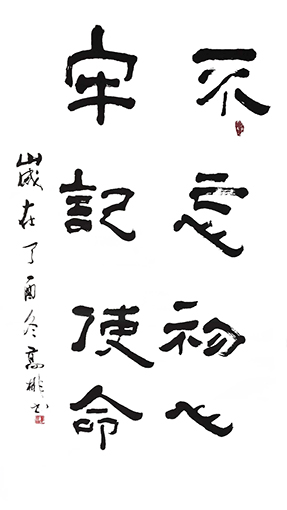 不忘初心
牢記使命
歲在丁酉冬高彬书